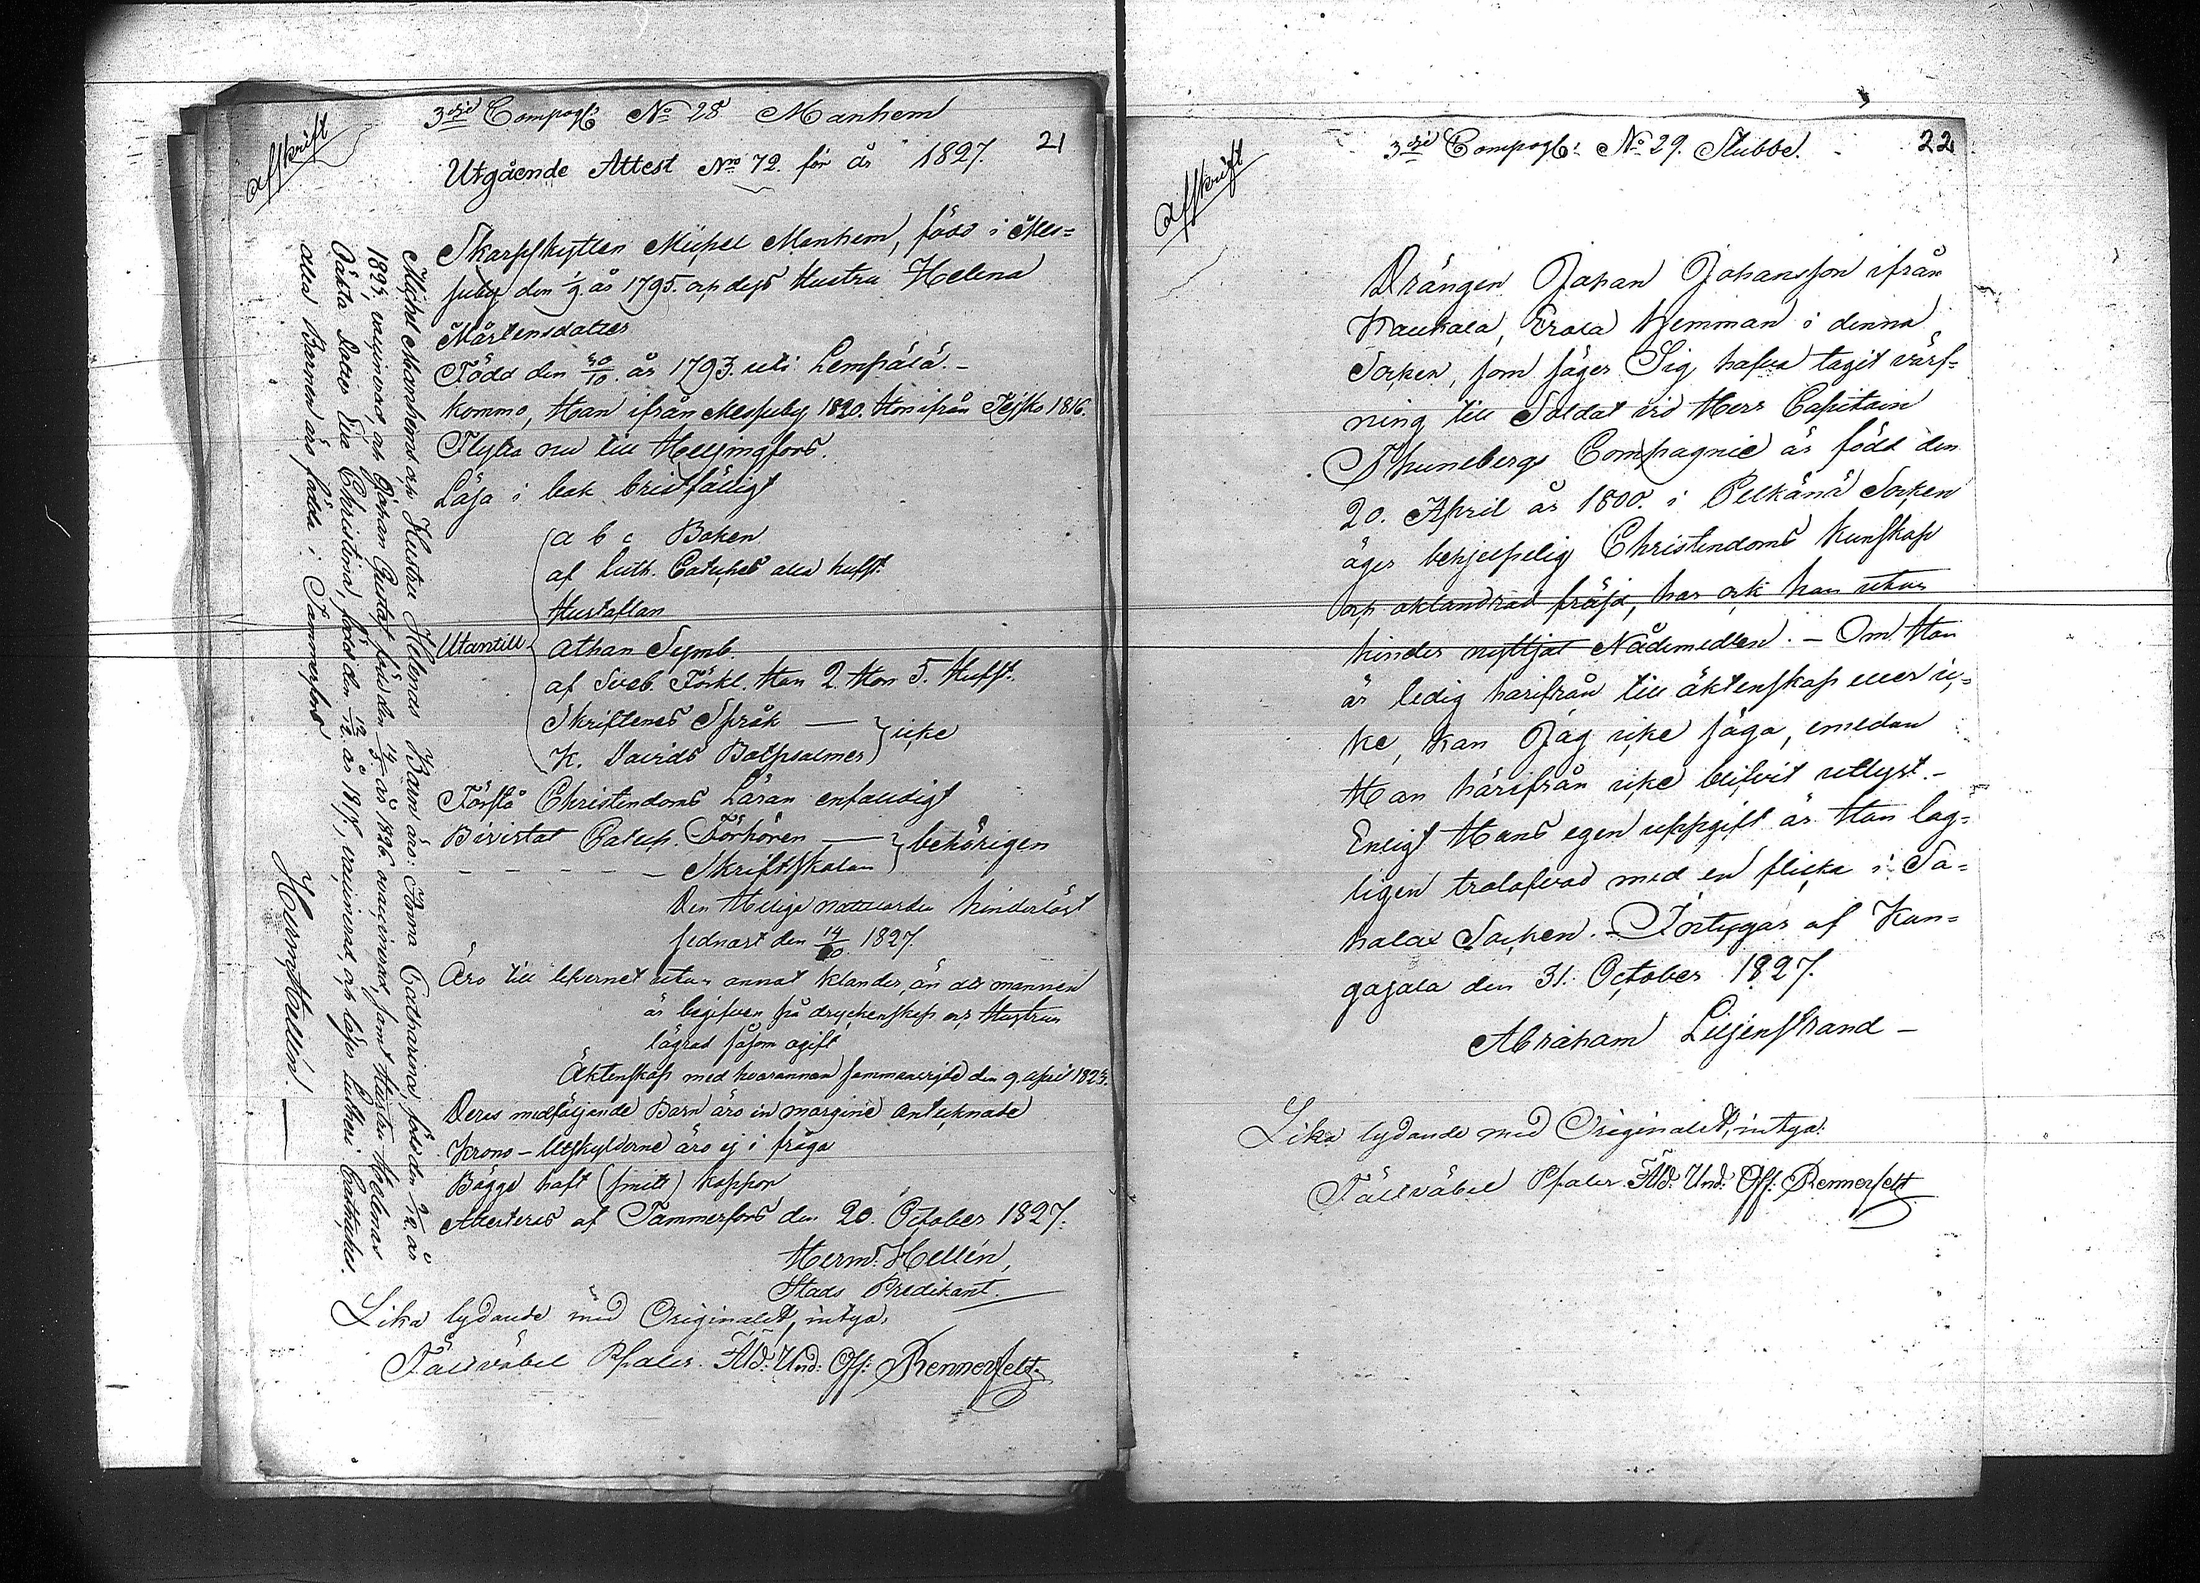 Afskrift
3die Compagt: No 28 Manhem
21
Utgående Attest No 72. för år 1827.
Skarpskytten Michel Manhem, född i Mes=
suby den 1/9 år 1795. och dess Hustru Helena
Mårtensdatter
Född den 30/10. år 1793. uti Lempälä. -
komne, Han ifrån Messuby 1820. Hon ifrån Tejsko 1816.
Flytta nu till Helsingfors.
Läsa i bok bristfälligt
a b c Boken
af Luth. Catches alla hufst.
Hustaflan
Utantill
Athan Symb.
af Sveb. Förkl. Han 2. Hon 5. Hufst.
Skriftenes Språk —
K. Davids Botpsalmer
icke
Förstå Christendoms Läran enfaldigt
Bivistat Catech. Förhören —
- - - - - Skriftskolan
behörigen
Den Heliga nattvarden hinderlöst
sednast den 14/10 1827.
Äro till lefvernet utan annat klander än att mannen
är begifven på dryckenskap och Hustrun
lägrad såsom ogift
Äktenskap med hvarannan sammanvigde den 9. April 1823.
Deras medföljande Barn äro in margine antecknade
Krono-Utskylderne äro ej i fråga
Bägge haft (smitt) koppor
Attesteras af Tammerfors den 20. October 1827.
Herm. Hellén,
Stads Predikant.
Lika lydande med Originalet, intyga:
Fältväbel Pfaler. Fäld: Und: Off: Rennerfelt
Michel Manhems och Hustru Helenas Barn äro: Anna Catharina, född den 2/12 år
1824, vaccinerad, och Johan Gustaf född den 14/5 år 1826. vaccinerad, samt Hustru Helenas
Oäkta Dotter Eva Christina, född den 12/12. år 1817, vaccinerad, och läser Lutheri Cathches.
alla Barnen äro födda i Tammerfors
Herm. Hellén.
Afskrift
3die Compagt: No 29. Stubbe.
22
Drängen Johan Johansson ifrån
Kaukala, Erola Hemman i denna
Socken, som säger Sig hafva tagit värf=
ning till Soldat vid Herr Capitain
Thunebergs Compagnie är född den
20. April år 1800. i Pelkänä Socken
äger behjelpelig Christendoms Kunskap
och oklandrad fräjd, har ock han utan
hinder nyttjat Nådemedlen. - Om Han
är ledig härifrån till äktenskap eller ic=
ke, kan Jag icke säga, emedan
Han härifrån icke blifvit utlyst. -
Enligt Hans egen uppgift är Han lag=
ligen trolofvad med en flicka i Sa=
halax Socken. - Intygar af Kan=
gasala den 31. October 1827.
Abraham Liljenstrand -
Lika lydande med Originalet, intyga:
Fältväbel Pfaler. Fäld: Und: Off: Rennerfelt